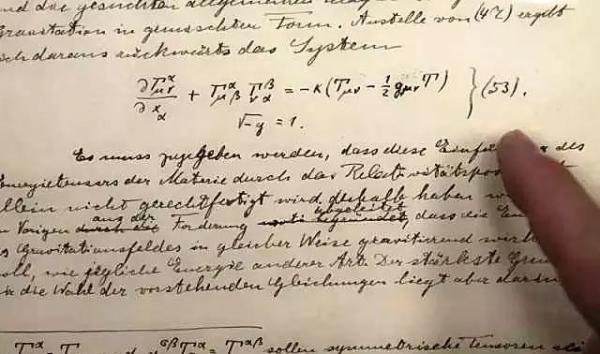 und die gesuchten allgemeinen
Gravitation in gemischten Form. Anstelle von (47) ergibt
sich daraus rückwärts das System
∂Γ^α_μν/∂x_α + Γ^α_μβ Γ^β_να = −κ(T_μν − ½ g_μν T) } (53).
√−g = 1.
Es muss zugegeben werden, dass diese Einfü des
Energietensors der Materie durch das Relativitätspost
allein nicht gerechtfertigt wird; deshalb haben
im Vorigen aus der Forderung abgeleitet, dass die En
Gravitationsfeldes in gleicher Weise gravitierend wirk
soll, wie jegliche Energie anderer Art. Der stärkste Grun
die Wahl der vorstehenden Gleichungen liegt aber darin
sollen symmetrische Tensoren sei